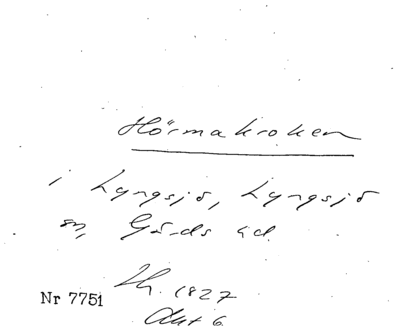 Hörmakroken
i Lyngsjö, Lyngsjö
sn, Gärds hd
Lh. 1827
Nr 7751
Akt 6